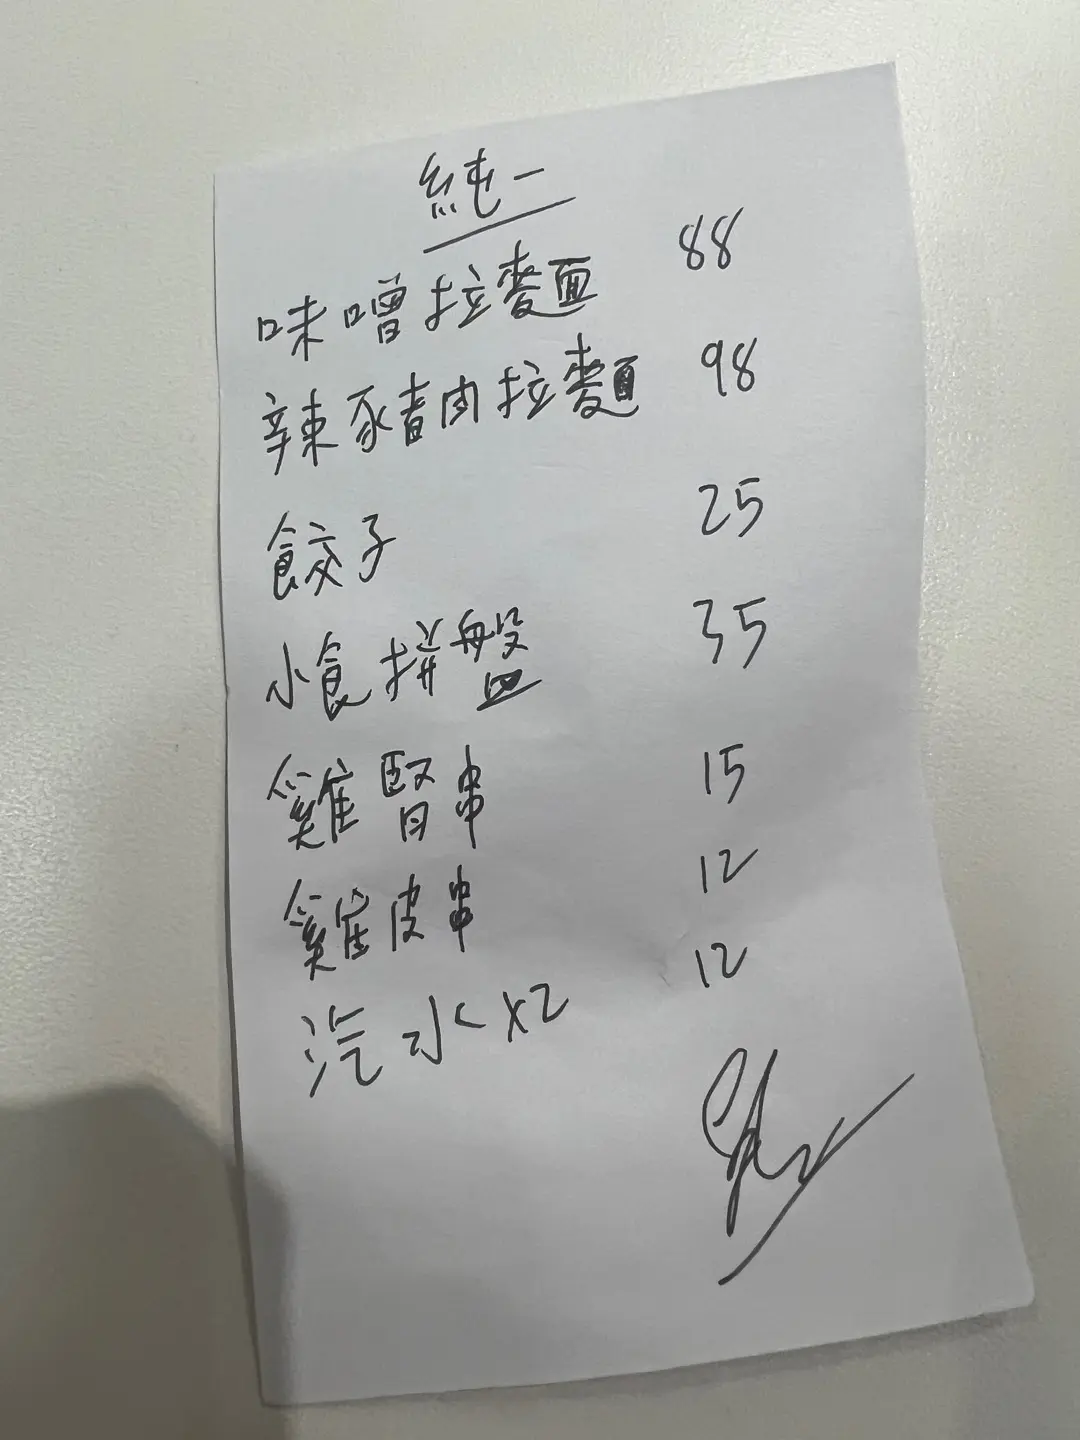 純一
味噌拉麵 88
辣豬肉拉麵 98
餃子 25
小食拼盤 35
雞腎串 15
雞皮串 12
汽水x2 12